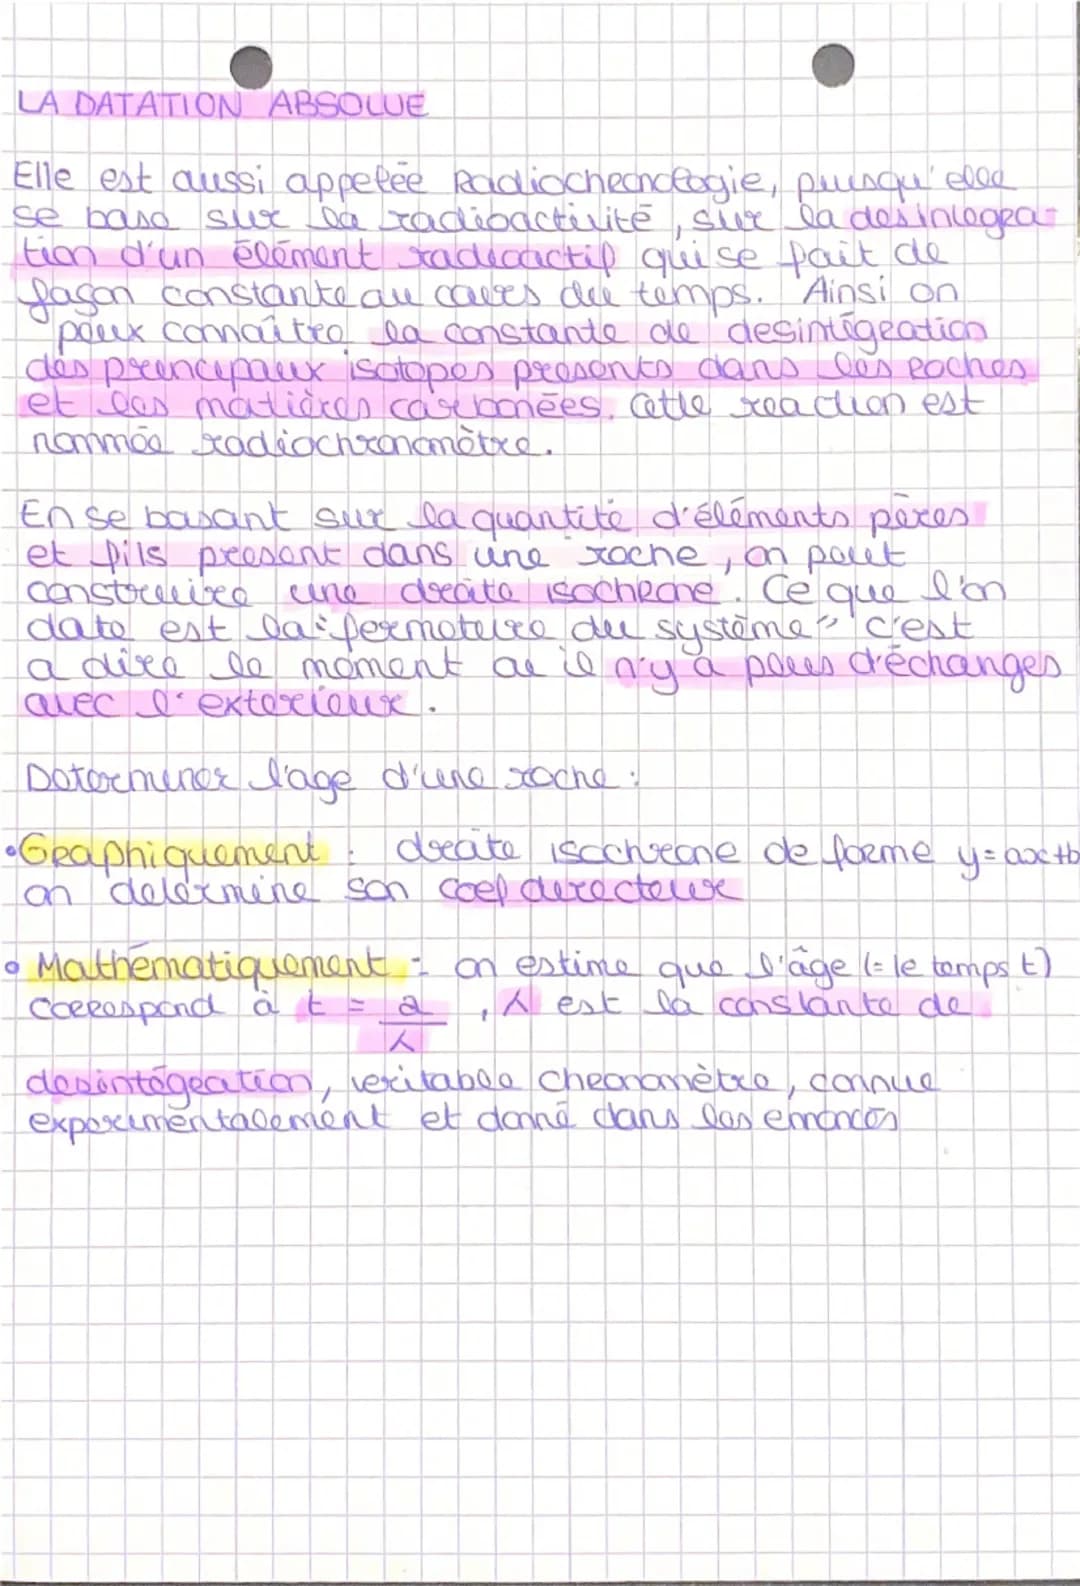 LA DATATION ABSOLUE
Elle est aussi appelée Radiochronologie, puisqu'elle
se base sur la radioactivité, sur la desintegra-
tion d'un élément radioactif qui se fait de
façon constante au cours du temps. Ainsi on
peux connaître la constante de desintégration
des principaux isotopes presents dans les roches
et les matières carbonées. Cette reaction est
nommée radiochronomètre.
En se basant sur la quantité d'éléments pères
et fils present dans une roche, on peut
construire une droite isochrone. Ce que l'on
date est la "fermeture du système" c'est
a dire le moment ou il n'y a plus d'échanges
avec l'exterieur.
Determiner l'age d'une roche :
•Graphiquement : droite isochrone de forme y=ax+b
on determine son coef directeur
• Mathématiquement : on estime que l'âge (= le temps t)
correspond à t = a/λ , λ est la constante de
desintégration, veritable chronomètre, connue
experimentalement et donné dans les énoncés